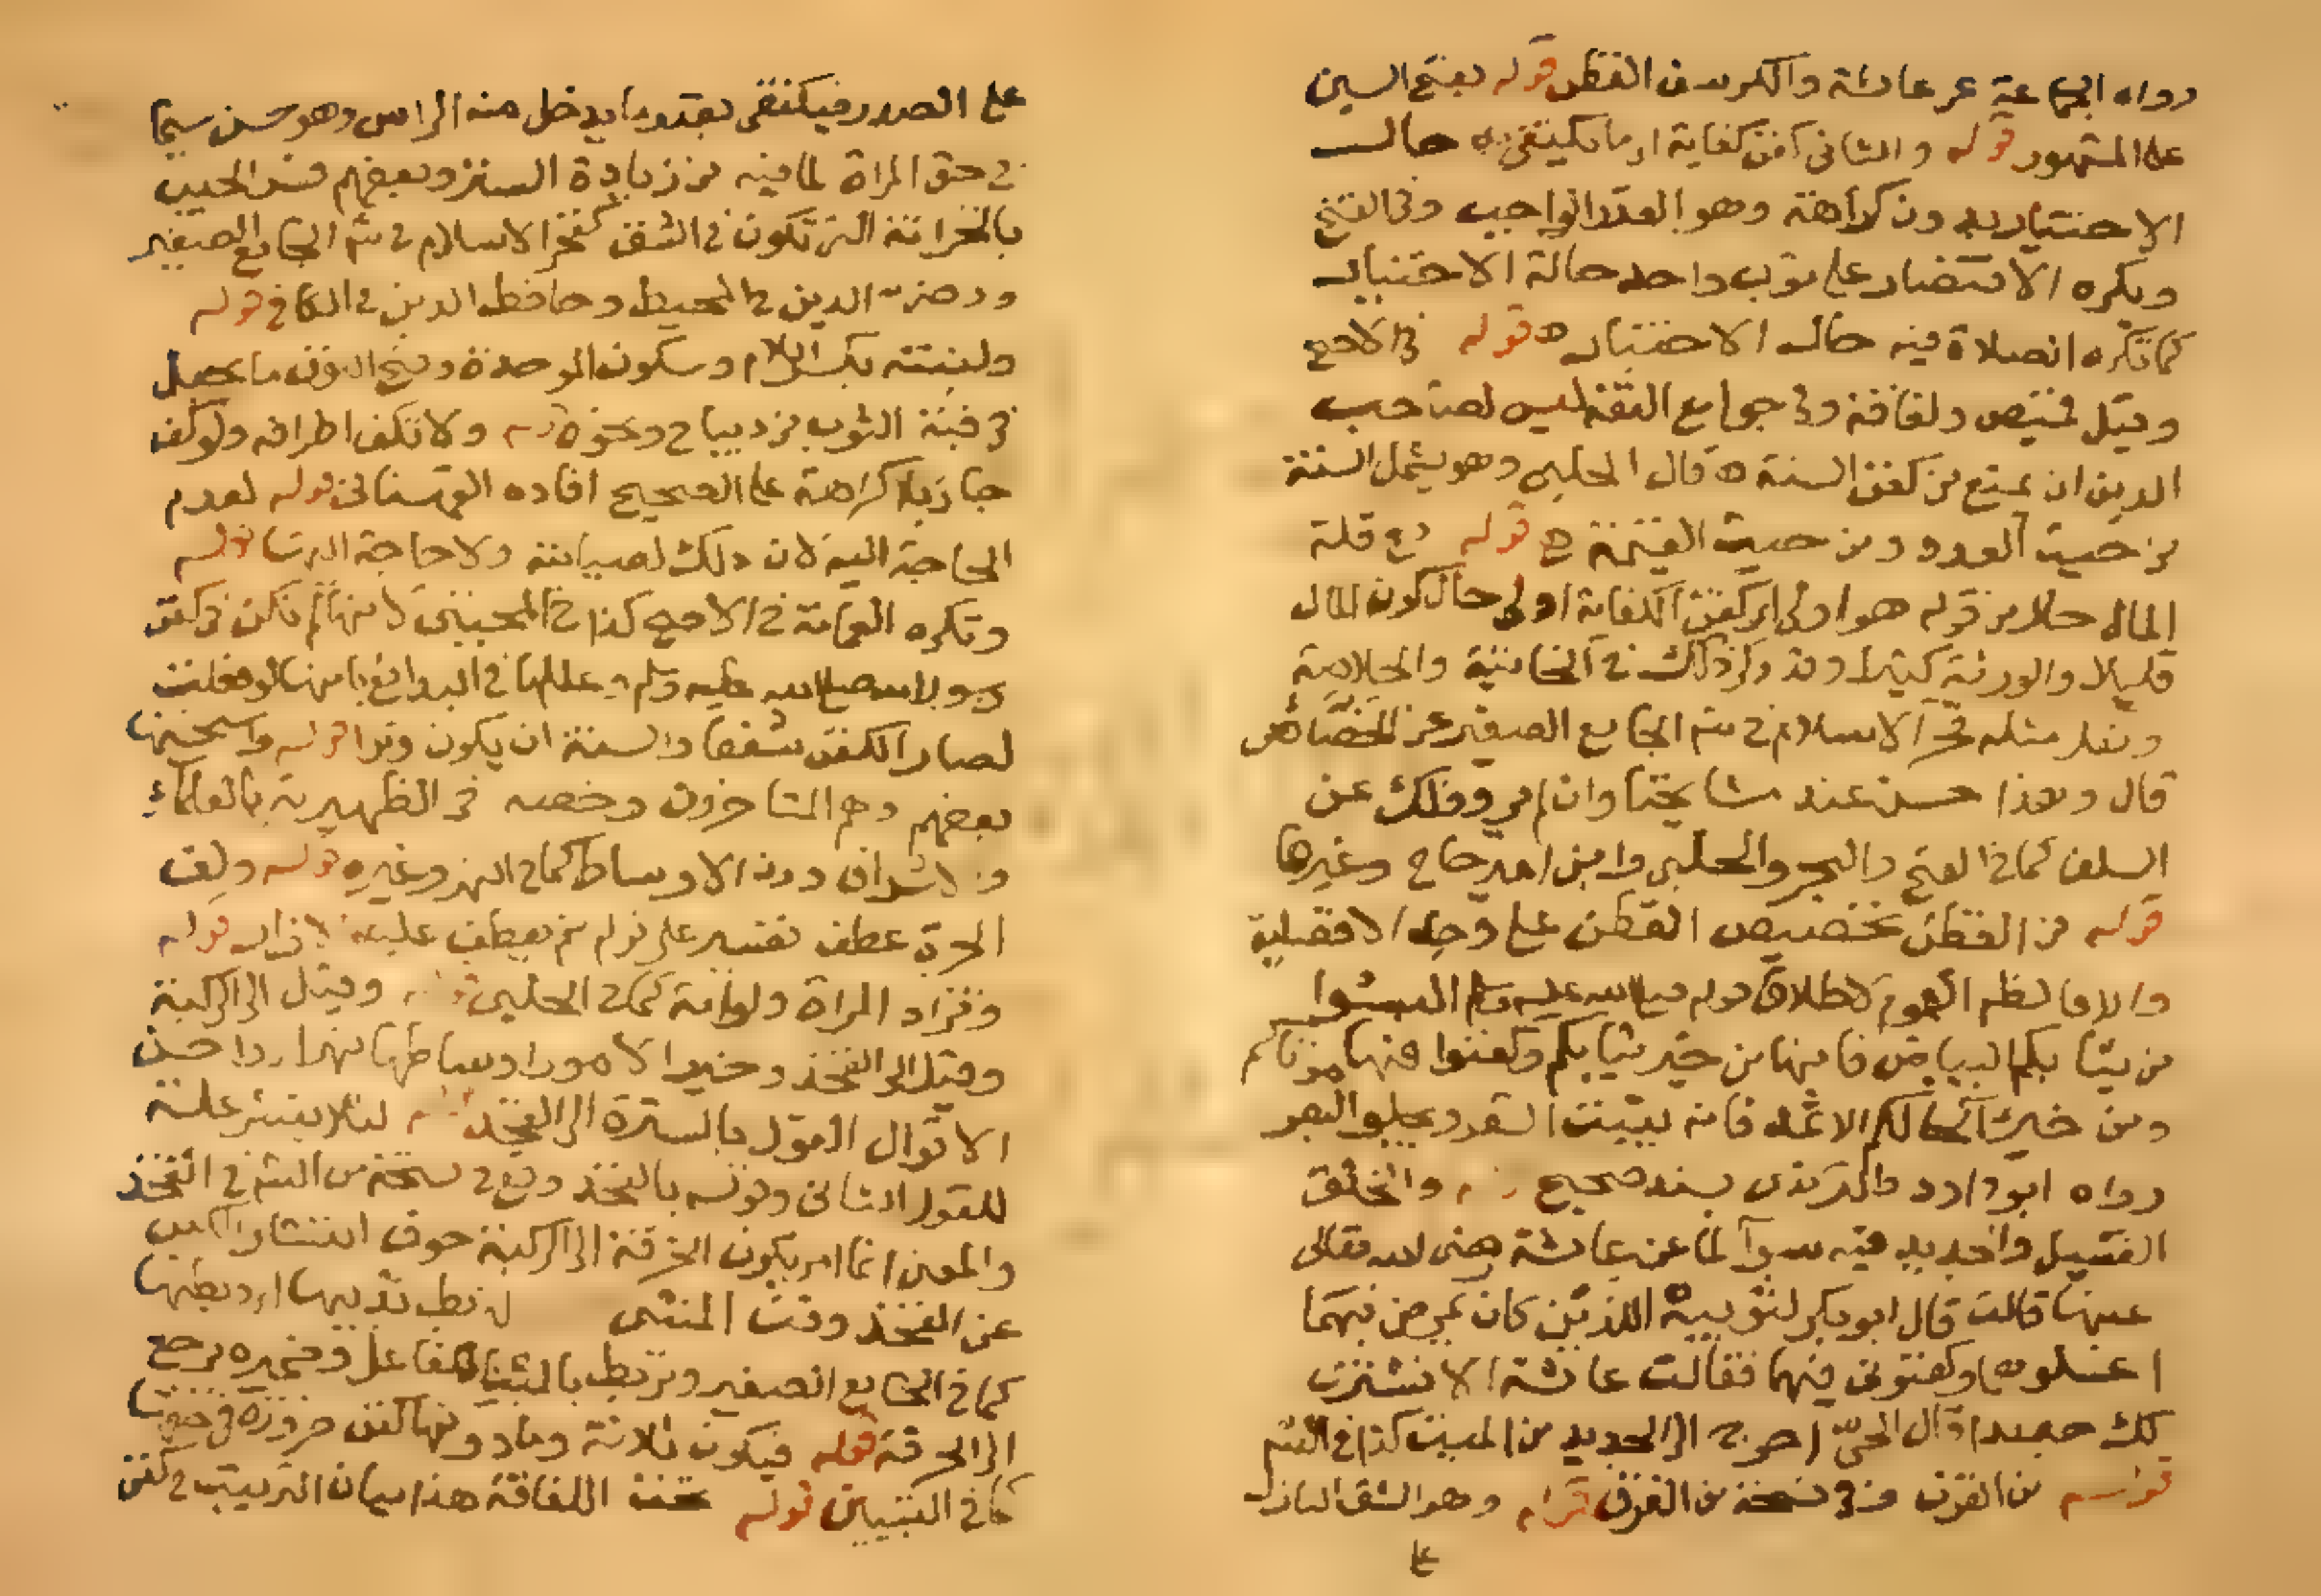 رواه الجماعة عن عائشة والكرسف القطن قوله بفتح السين
على المشهور قوله والثاني كفن كفاية اي ما يكتفى به حالـ
الاختيار بدون كراهة وهو القدر الواجب وفي الفتح
ويكره الاقتصار على ثوب واحد حالة الاختيار
كما تكره الصلاة فيه حال الاختيار ه قوله في الاصح
وقيل قميص ولفافة وفي جوامع الفقه ليس لصاحب
الدين ان يمنع من كفن السنة ه قال الحلبي وهو يشمل السنة
من حيث العدد ومن حيث القيمة ه قوله مع قلة
المال حال من قوله هو اولى اي كفن الكفاية اولى حال كون المال
قليلا والورثة كثيرا وقد ذكر ذلك في الخانية والخلاصة
ونقل مثله فخر الاسلام في شم الجامع الصغير عن الخصاف
قال وهذا حسن عند مشايخنا وان لم يرو ذلك عن
السلف كما في الفتح والبحر والحلبي وابن امير حاج وغيرها
قوله من القطن تخصيص القطن على وجه الافضلية
والا فالنظم العموم لاطلاق قوله صلى الله عليه وسلم البسوا
من ثيابكم البياض فانها من خير ثيابكم وكفنوا فيها موتاكم
ومن خير اكحالكم الاثمد فانه ينبت الشعر ويجلو البصر
رواه ابو داود والترمذي بسند صحيح والخلق
الغسيل والجديد فيه سوآ لما عن عائشة رضي الله تعالى
عنها قالت قال ابو بكر لثوبيه اللذين كان يمرض فيهما
اغسلوهما وكفنوني فيهما فقالت عائشة الا نشتري
لك جديدا قال الحيّ احوج الى الجديد من الميت كذا في الشم
قوله من القرن وفي نسخة من الفرق قوله وهو الشق النازل
على
على الصدر فيكتفى بقدر ما يدخل منه الراس وهو حسن سيما
في حق المراة لما فيه من زيادة الستر وبعضهم فسر الجيب
بالخرانة التي تكون في الشق كفخر الاسلام في شم الجامع الصغير
ورضي الدين في المحيط وحافظ الدين في الكافي قوله
ولبنته بكسر اللام وسكون الموحدة وفتح النون ما يجعل
في قبة الثوب من ديباج ونحوه قوله ولا تكف اطرافه ولو كف
جاز بلا كراهة على الصحيح افاده القهستاني قوله لعدم
الحاجة اليه لان ذلك لصيانته ولا حاجة اليها قوله
وتكره العمامة في الاصح كذا في المجتبى لانها لم تكن في كفن
رسول الله صلى الله عليه وسلم وعللها في البدائع بانها لو فعلت
لصار الكفن شفعا والسنة ان يكون وترا قوله واستحسنها
بعضهم وهم المتاخرون وخصه في الظهيرية بالعلماء
والاشراف دون الاوساط كما في النهر وغيره قوله ولف
الحرة عطف تفسير على قوله ثم يعطف عليه الازار قوله
وتزاد المراة ولو امة كما في الحلبي قوله وقيل الى الركبة
وقيل الى الفخذ وخير الامور اوساطها
الاقوال القول بالسترة الى الفخذ قوله لئلا ينتشر علة
للقول الثاني وقوله بالفخذ وقع في نسخة من الشم في الفخذ
والمعنى انما امر بكون الخرقة الى الركبة خوف انتشار الكفن
عن الفخذ وقت المشي لربط ثدييها اي وبطنها
كما في الجامع الصغير وتربط بالبناء للفاعل وضميره يرجع
الى الخرقة قوله فيكون ثلاثة وما دونها كفن ضرورة في حقها
كما في التبيين قوله تحت اللفافة هذا بيان الترتيب في كفن